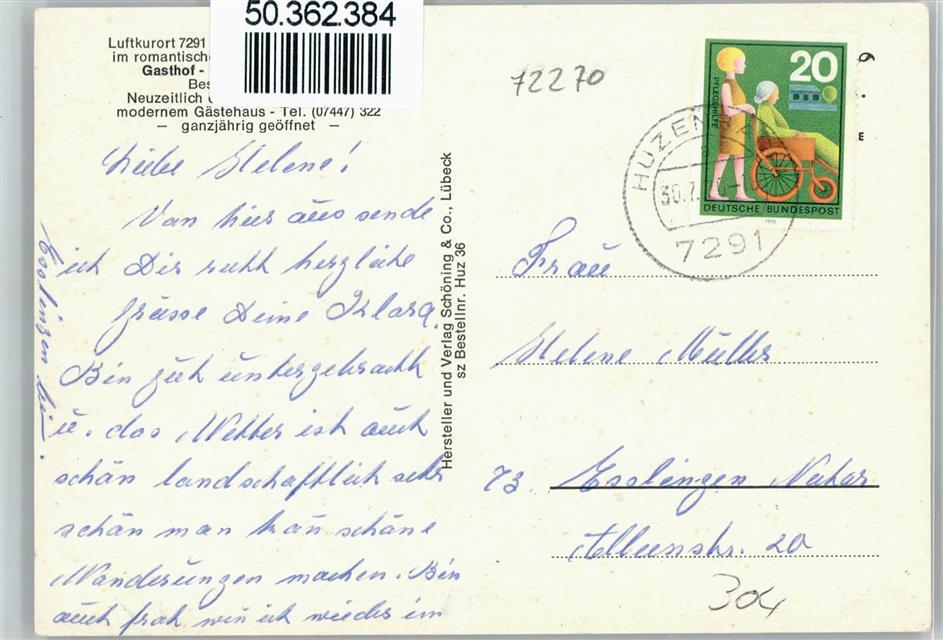 50.362.384
Luftkurort 7291
im romantische
Gasthof -
Bes
Neuzeitlich
modernem Gästehaus - Tel. (07447) 322
— ganzjährig geöffnet —
Liebe Helene!
Von hier aus sende
ich Dir recht herzliche
Grüsse Deine Klara.
Bin gut untergebracht
u. das Wetter ist auch
schön landschaftlich sehr
schön man kan schöne
Wanderungen machen. Bin
auch froh win ich wieder im
Esslingen bin.
Hersteller und Verlag Schöning & Co., Lübeck
sz Bestellnr. Huz 36
72270
20
PFLEGEHILFE
DEUTSCHE BUNDESPOST
1970
HUZEN
30.7.
7291
Frau
Helene Müller
73 Esslingen Neckar
Alleenstr. 20
304